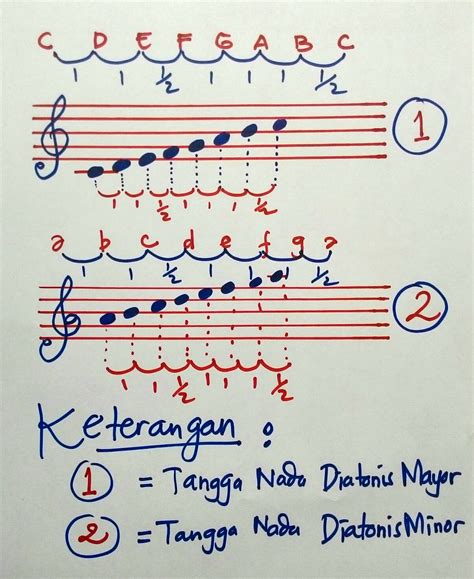 C D E F G A B C
1 1 ½ 1 1 1 ½
1
1 1 ½ 1 1 1 ½
a b c d e f g a
1 1 ½ 1 1 1 ½
2
1 1 ½ 1 1 1 ½
Keterangan :
1 = Tangga Nada Diatonis Mayor
2 = Tangga Nada Diatonis Minor